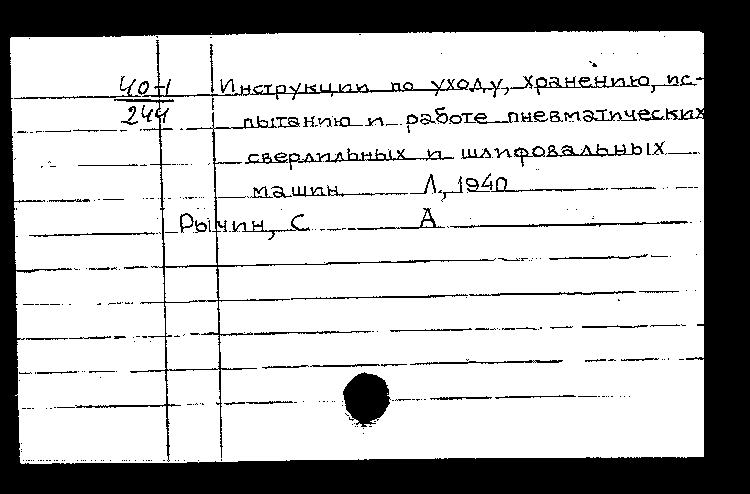 40-1 Инструкции по уходу, хранению, ис-
244 пытанию и работе пневматических
сверлильных и шлифовальных
машин. Л., 1940
Рычин, С А